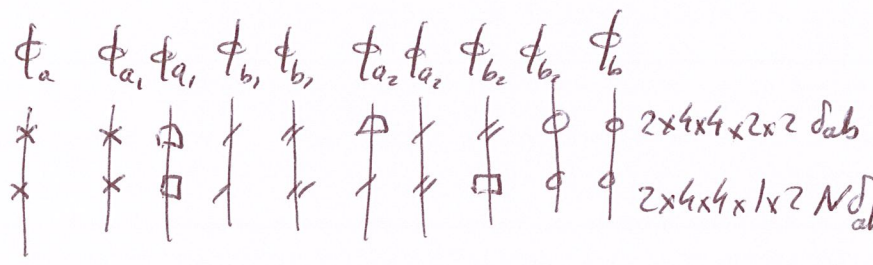 ϕ_a ϕ_{a_1} ϕ_{a_1} ϕ_{b_1} ϕ_{b_1} ϕ_{a_2} ϕ_{a_2} ϕ_{b_2} ϕ_{b_2} ϕ_b
2×4×4×2×2 δ_{ab}
2×4×4×1×2 N δ_{ab}